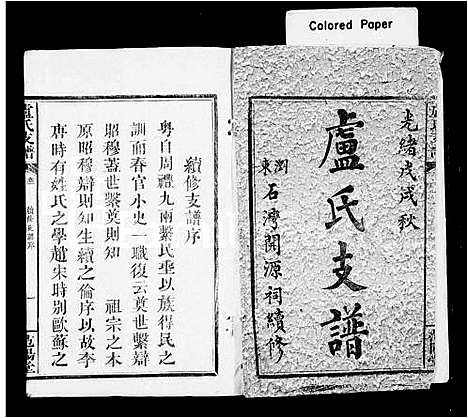 Colored Paper
光緒戊戌秋
盧氏支譜
瀏東
石灣開源祠續修
續修支譜序
粵自周禮九兩繫民亟以族得民之
訓而春官小史一職復云奠世繫辯
昭穆蓋世繫奠則知 祖宗之本
原昭穆辯則知生續之倫序以故李
唐時有姓氏之學趙宋時別歐蘇之
盧氏支譜